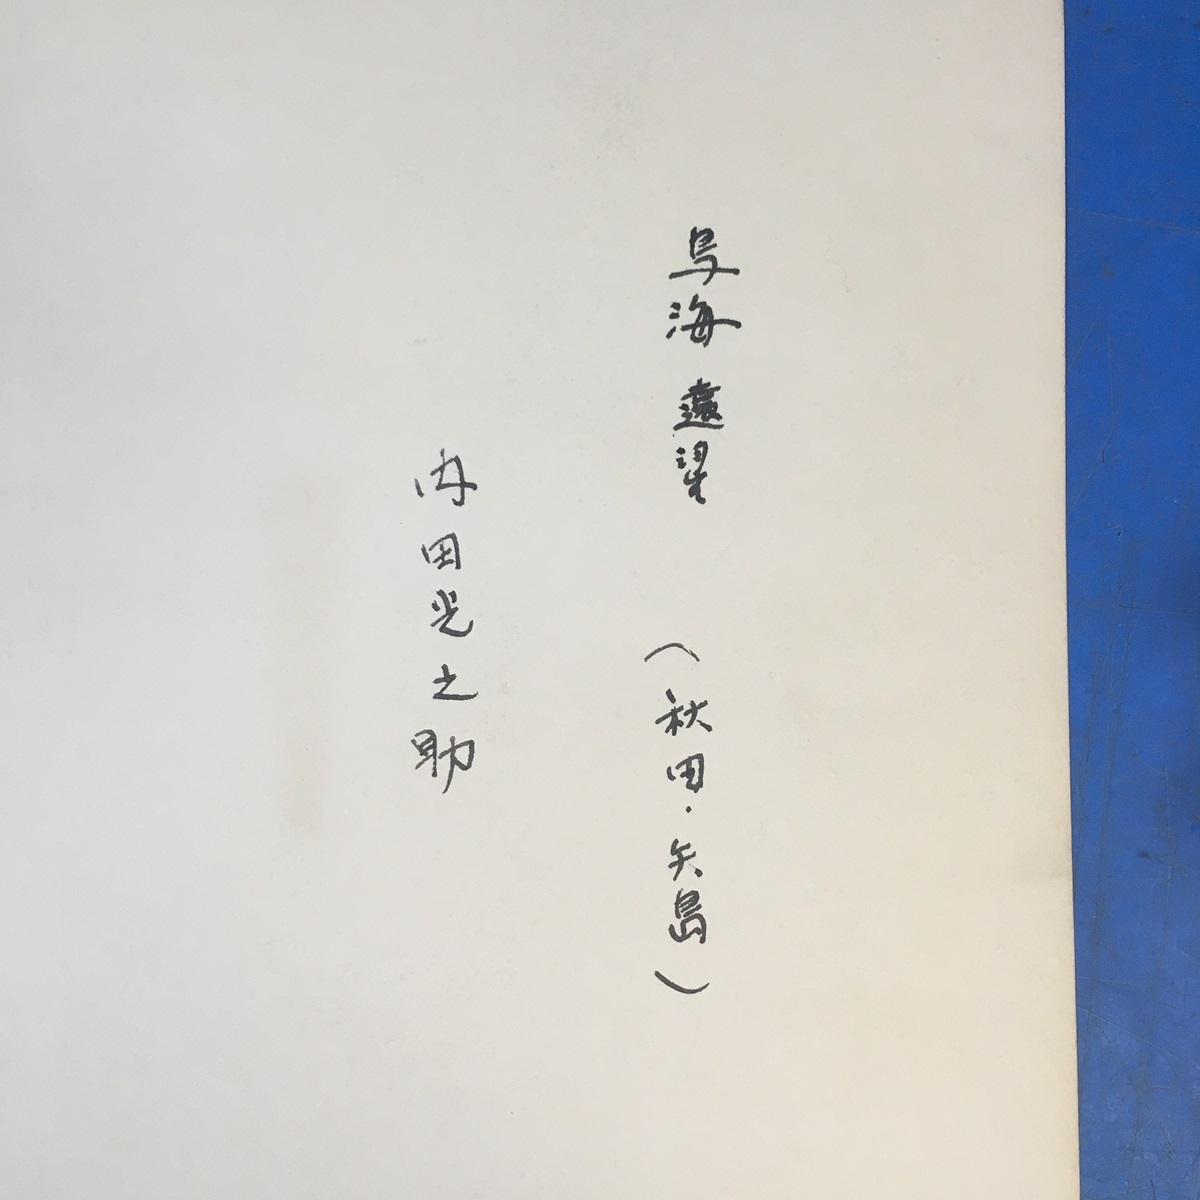 鳥海遠望 （秋田・矢島）
内田光之助